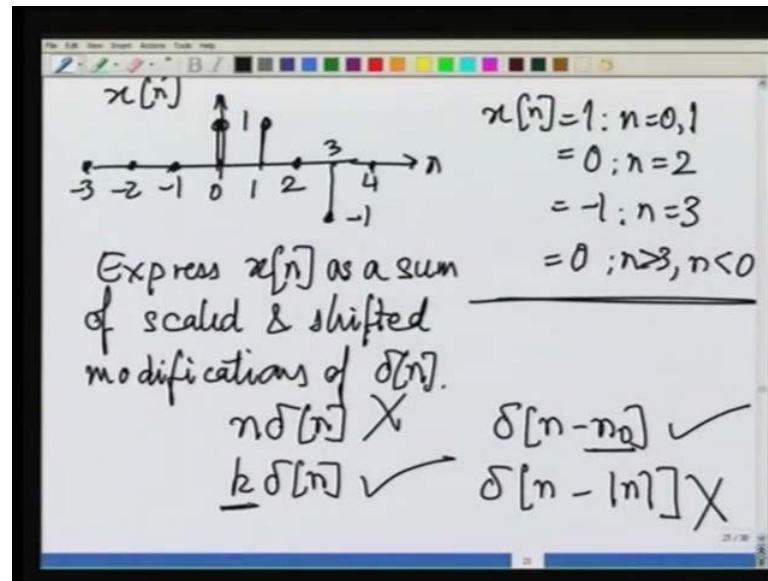 File Edit View Insert Actions Tools Help
B I
x[n]
1
n
-3 -2 -1 0 1 2 3 4
-1
x[n]=1: n=0,1
=0; n=2
=-1: n=3
=0; n>3, n<0
Express x[n] as a sum
of scaled & shifted
modifications of δ[n].
nδ[n] X
δ[n-n0] ✓
kδ[n] ✓
δ[n-|n|] X